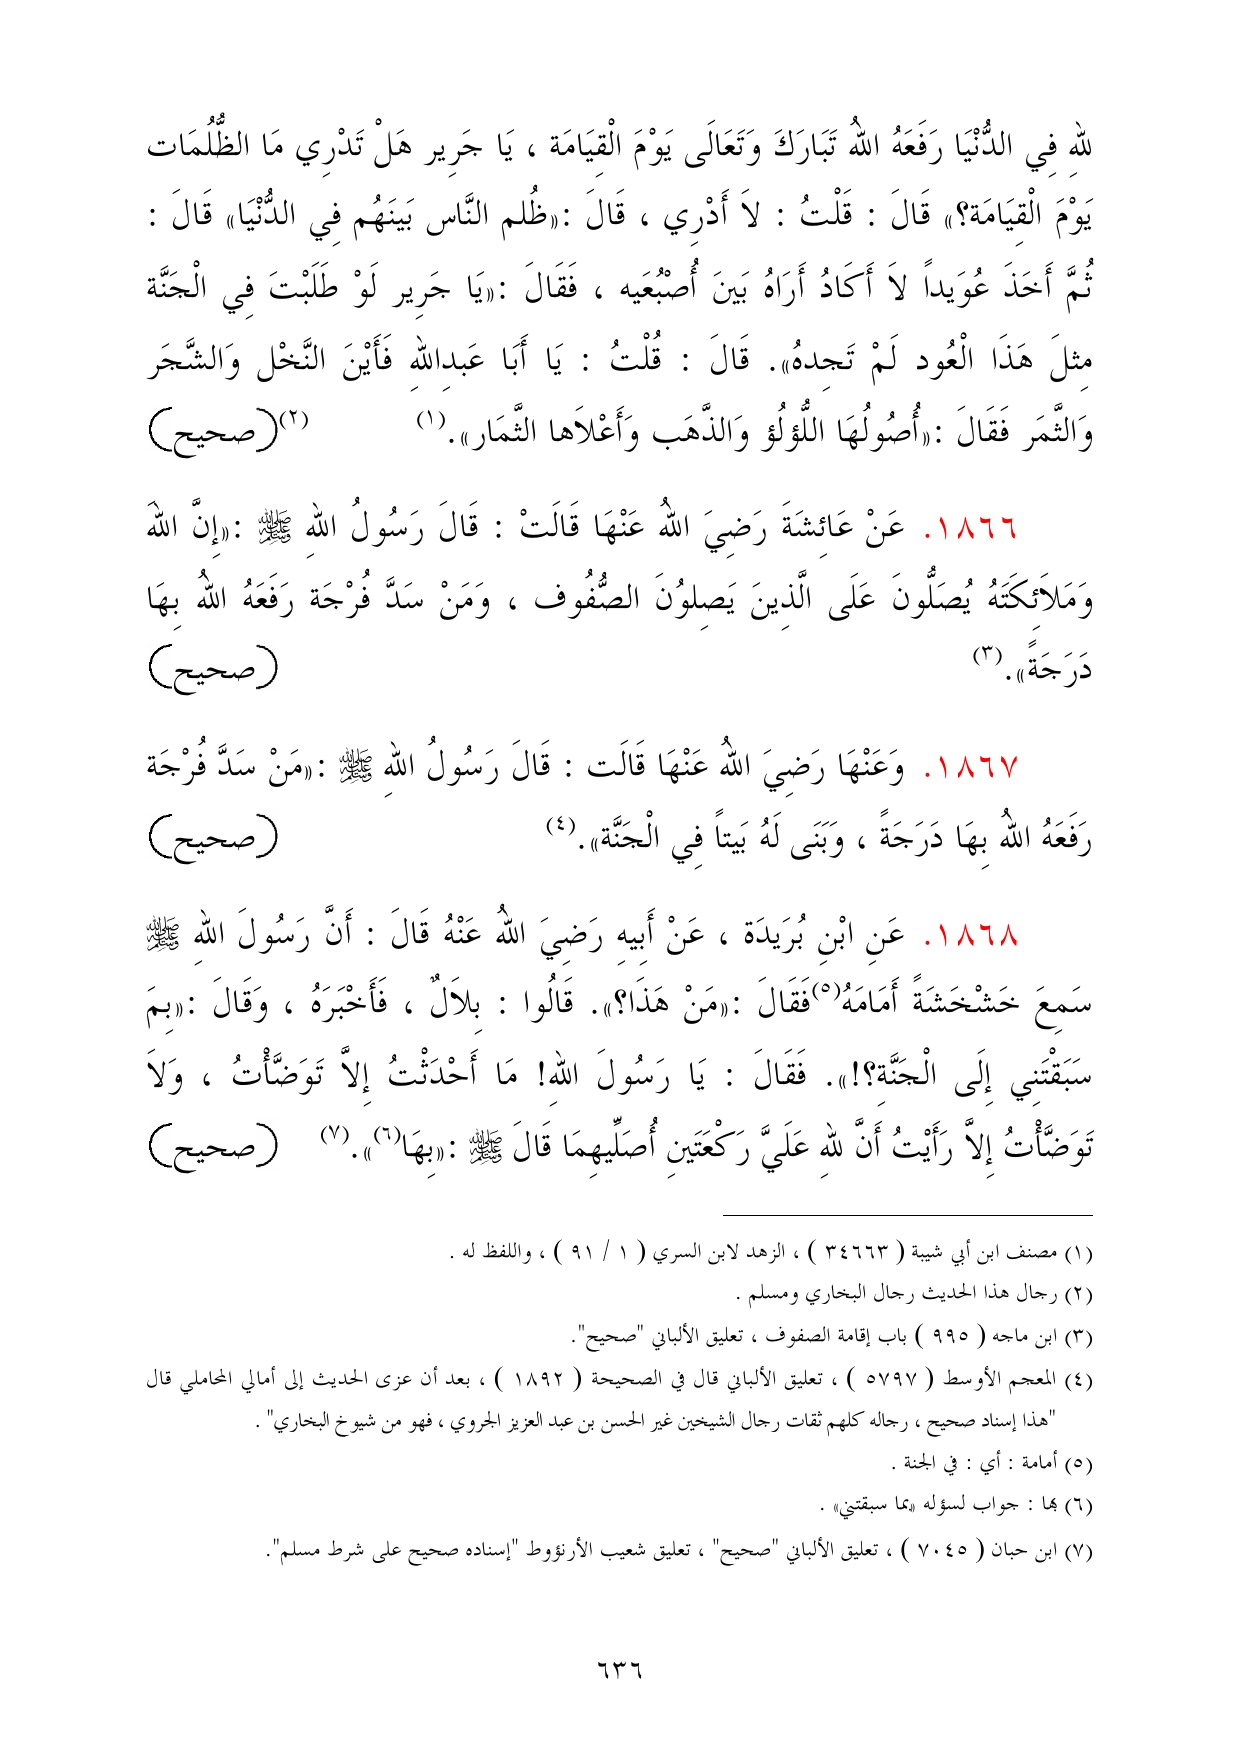 للهِ فِي الدُّنْيَا رَفَعَهُ اللهُ تَبَارَكَ وَتَعَالَى يَوْمَ الْقِيَامَة ، يَا جَرِير هَلْ تَدْرِي مَا الظُّلُمَات
يَوْمَ الْقِيَامَة؟» قَالَ : قَلْتُ : لاَ أَدْرِي ، قَالَ :«ظُلم النَّاس بَينَهُم فِي الدُّنْيَا» قَالَ :
ثُمَّ أَخَذَ عُوَيداً لاَ أَكَادُ أَرَاهُ بَينَ أُصْبُعَيه ، فَقَالَ :«يَا جَرِير لَوْ طَلَبْتَ فِي الْجَنَّة
مِثلَ هَذَا الْعُود لَمْ تَجِدهُ». قَالَ : قُلْتُ : يَا أَبَا عَبدِاللهِ فَأَيْنَ النَّخْل وَالشَّجَر
وَالثَّمَر فَقَالَ :«أُصُولُهَا اللُّؤلُؤ وَالذَّهَب وَأَعْلاَها الثَّمَار».(١) (٢)(صحيح)
١٨٦٦. عَنْ عَائِشَةَ رَضِيَ اللهُ عَنْهَا قَالَتْ : قَالَ رَسُولُ اللهِ ﷺ :«إِنَّ اللهَ
وَمَلاَئِكَتَهُ يُصَلُّونَ عَلَى الَّذِينَ يَصِلوُنَ الصُّفُوف ، وَمَنْ سَدَّ فُرْجَة رَفَعَهُ اللهُ بِهَا
دَرَجَةً».(٣) (صحيح)
١٨٦٧. وَعَنْهَا رَضِيَ اللهُ عَنْهَا قَالَت : قَالَ رَسُولُ اللهِ ﷺ :«مَنْ سَدَّ فُرْجَة
رَفَعَهُ اللهُ بِهَا دَرَجَةً ، وَبَنَى لَهُ بَيتاً فِي الْجَنَّة».(٤) (صحيح)
١٨٦٨. عَنِ ابْنِ بُرَيدَة ، عَنْ أَبِيهِ رَضِيَ اللهُ عَنْهُ قَالَ : أَنَّ رَسُولَ اللهِ ﷺ
سَمِعَ خَشْخَشَةً أَمَامَهُ(٥)فَقَالَ :«مَنْ هَذَا؟». قَالُوا : بِلاَلٌ ، فَأَخْبَرَهُ ، وَقَالَ :«بِمَ
سَبَقْتَنِي إِلَى الْجَنَّة؟!». فَقَالَ : يَا رَسُولَ اللهِ! مَا أَحْدَثْتُ إِلاَّ تَوَضَّأْتُ ، وَلاَ
تَوَضَّأْتُ إِلاَّ رَأَيْتُ أَنَّ للهِ عَلَيَّ رَكْعَتَينِ أُصَلِّيهِمَا قَالَ ﷺ :«بِهَا(٦)».(٧) (صحيح)
(١) مصنف ابن أبي شيبة ( ٣٤٦٦٣ ) ، الزهد لابن السري ( ١ / ٩١ ) ، واللفظ له .
(٢) رجال هذا الحديث رجال البخاري ومسلم .
(٣) ابن ماجه ( ٩٩٥ ) باب إقامة الصفوف ، تعليق الألباني "صحيح".
(٤) المعجم الأوسط ( ٥٧٩٧ ) ، تعليق الألباني قال في الصحيحة ( ١٨٩٢ ) ، بعد أن عزى الحديث إلى أمالي المحاملي قال
"هذا إسناد صحيح ، رجاله كلهم ثقات رجال الشيخين غير الحسن بن عبد العزيز الجروي ، فهو من شيوخ البخاري" .
(٥) أمامة : أي : في الجنة .
(٦) بها : جواب لسؤله «بما سبقتني» .
(٧) ابن حبان ( ٧٠٤٥ ) ، تعليق الألباني "صحيح" ، تعليق شعيب الأرنؤوط "إسناده صحيح على شرط مسلم".
٦٣٦